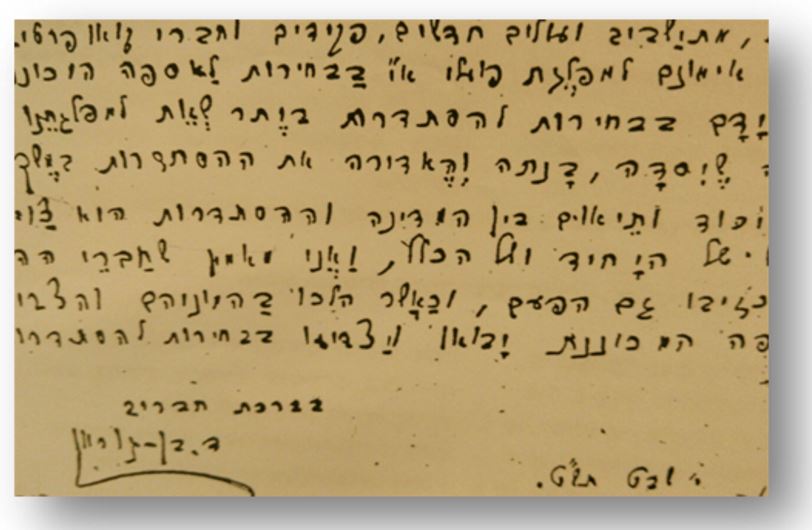 , מתישבים ועולים חדשים, פקידים וחברי קואופרטי
אימונם למפלגת פועלי א"י בבחירות לאספה המכונ
יָדָם בבחירות להסתדרות ביֶתר שְׂאֵת למפלגתֵנו
שֶיִסדָה, בָּנתה וְהֶאדירה את ההסתדרות במֶשך
יכוד ותֵיאום בין המדינה וההסתדרות הוא צַו
של היָחיד ושל הכלל, וַאֲני מאמין שֶחַברֵי הה
כזיבו גם הפעם, וכַאֲשר הלכו בַהמוניהם והצבי
פה המכוננת יָבואו ויַצביעו בבחירות להסתדרו
בברכת חברים
ד. בן-גוריון
י' שבט תש"ט.